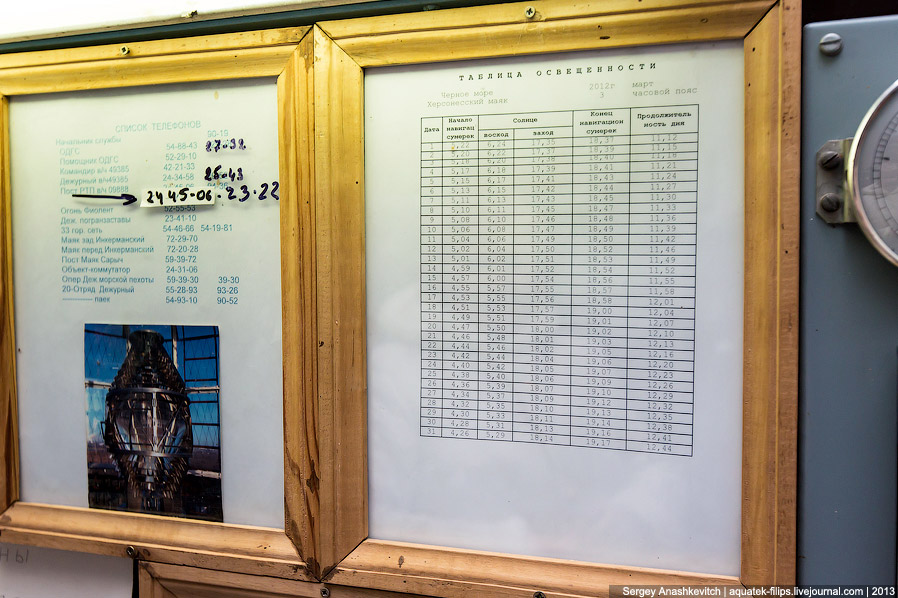 СПИСОК ТЕЛЕФОНОВ
90-19
Начальник службы 54-88-43 27-32
ОДГС 52-29-10
Помощник ОДГС 42-21-33
Командир в/ч49385 24-34-58 25-43
Дежурный в/ч49385
Пост РТП в/ч 09888
24 45-06. 23-22
Огонь Фиолент 52-55-53
Деж. погранзаставы 23-41-10
33 гор. сеть 54-46-66 54-19-81
Маяк зад Инкерманский 72-29-70
Маяк перед Инкерманский 72-20-28
Пост Маяк Сарыч 59-39-72
Объект-коммутатор 24-31-06
Опер Деж морской пехоты 59-39-30 39-30
20-Отряд Дежурный 55-28-93 93-26
паек 54-93-10 90-52
ТАБЛИЦА ОСВЕЩЕННОСТИ
Черное море 2012г март
Херсонесский маяк 3 часовой пояс
Дата Начало навигац сумерек Солнце восход заход Конец навигацион сумерек Продолжитель ность дня
1 5,22 6,24 17,35 18,37 11,12
2 5,20 6,22 17,37 18,39 11,15
3 5,18 6,20 17,38 18,40 11,18
4 5,17 6,18 17,39 18,41 11,21
5 5,15 6,17 17,41 18,43 11,24
6 5,13 6,15 17,42 18,44 11,27
7 5,11 6,13 17,43 18,45 11,30
8 5,10 6,11 17,45 18,47 11,33
9 5,08 6,10 17,46 18,48 11,36
10 5,06 6,08 17,47 18,49 11,39
11 5,04 6,06 17,49 18,50 11,42
12 5,02 6,04 17,50 18,52 11,46
13 5,01 6,02 17,51 18,53 11,49
14 4,59 6,01 17,52 18,54 11,52
15 4,57 6,00 17,54 18,56 11,55
16 4,55 5,57 17,55 18,57 11,58
17 4,53 5,55 17,56 18,58 12,01
18 4,51 5,53 17,57 19,00 12,04
19 4,49 5,51 17,59 19,01 12,07
20 4,47 5,50 18,00 19,02 12,10
21 4,46 5,48 18,01 19,03 12,13
22 4,44 5,46 18,02 19,05 12,16
23 4,42 5,44 18,04 19,06 12,20
24 4,40 5,42 18,05 19,07 12,23
25 4,38 5,40 18,06 19,09 12,26
26 4,36 5,39 18,07 19,10 12,29
27 4,34 5,37 18,09 19,12 12,32
28 4,32 5,35 18,10 19,13 12,35
29 4,30 5,33 18,11 19,14 12,38
30 4,28 5,31 18,13 19,16 12,41
31 4,26 5,29 18,14 19,17 12,44
Sergey Anashkevitch | aquatek-filips.livejournal.com | 2013